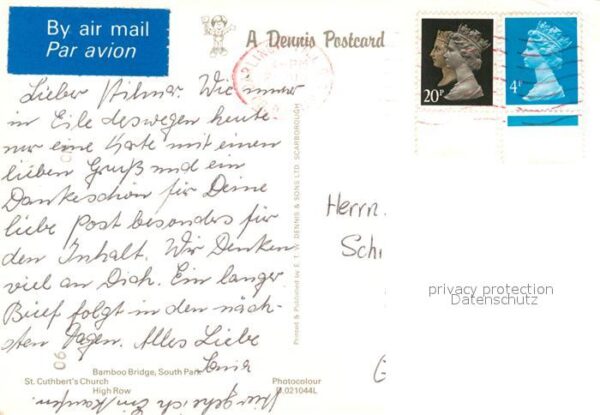 By air mail
Par avion
A Dennis Postcard
20P
4P
Lieber Hilmar. Wie immer
in Eile deswegen heute
nur eine Karte mit einen
lieben Gruß und ein
Dankeschön für Deine
liebe Post besonders für
den Inhalt. Wir Denken
viel an Dich. Ein langer
Brief folgt in den näch-
sten Tagen. Alles Liebe
Herrn.
Sch
privacy protection
Datenschutz
Printed & Published by E. T. W. DENNIS & SONS LTD. SCARBOROUGH
06
Bamboo Bridge, South Park
St. Cuthbert's Church
High Row
Photocolour
D.021044L